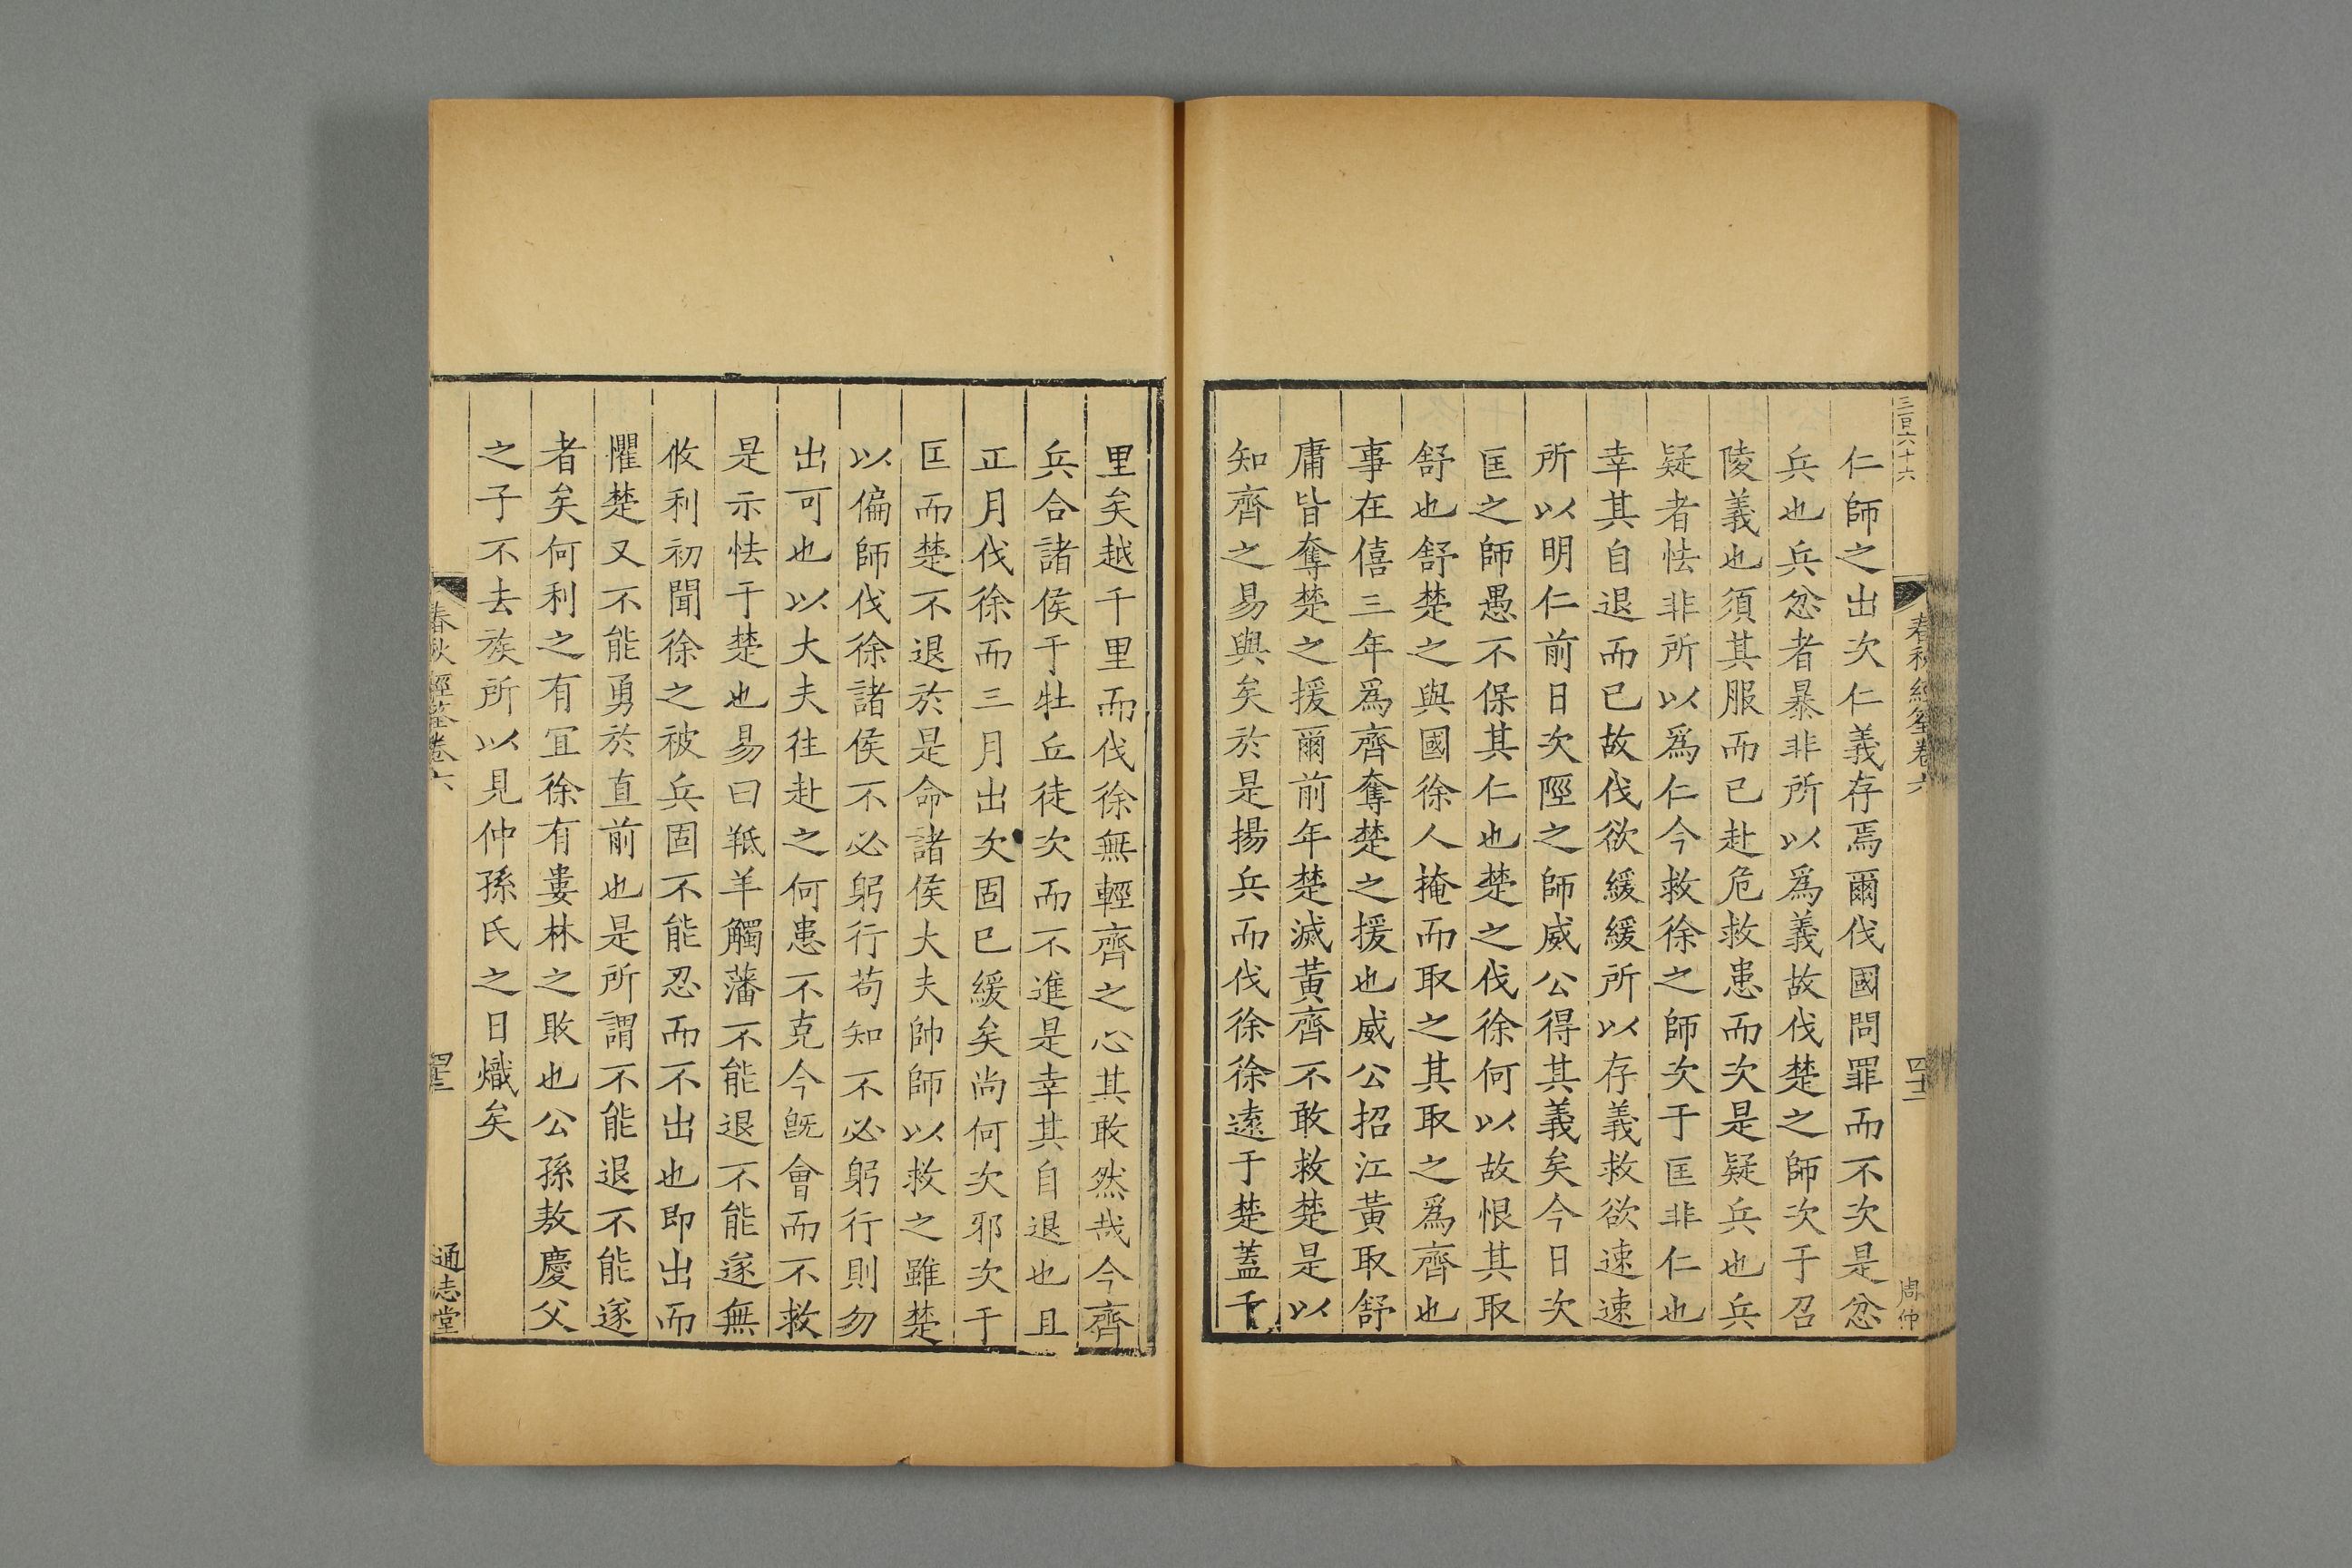 三百六十六
春秋經筌卷六
四十二
周仲
仁師之出次仁義存焉爾伐國問罪而不次是忿
兵也兵忿者暴非所以爲義故伐楚之師次于召
陵義也須其服而已赴危救患而次是疑兵也兵
疑者怯非所以爲仁今救徐之師次于匡非仁也
幸其自退而已故伐欲緩緩所以存義救欲速速
所以明仁前日次陘之師威公得其義矣今日次
匡之師愚不保其仁也楚之伐徐何以故恨其取
舒也舒楚之與國徐人掩而取之其取之爲齊也
事在僖三年爲齊奪楚之援也威公招江黃取舒
庸皆奪楚之援爾前年楚滅黃齊不敢救楚是以
知齊之易與矣於是揚兵而伐徐徐遠于楚蓋千
里矣越千里而伐徐無輕齊之心其敢然哉今齊
兵合諸侯于牡丘徒次而不進是幸其自退也且
正月伐徐而三月出次固已緩矣尚何次邪次于
匡而楚不退於是命諸侯大夫帥師以救之雖楚
以偏師伐徐諸侯不必躬行苟知不必躬行則勿
出可也以大夫往赴之何患不克今旣會而不救
是示怯于楚也易曰羝羊觸藩不能退不能遂無
攸利初聞徐之被兵固不能忍而不出也即出而
懼楚又不能勇於直前也是所謂不能退不能遂
者矣何利之有冝徐有婁林之敗也公孫敖慶父
之子不去族所以見仲孫氏之日熾矣
春秋經筌卷六
通志堂